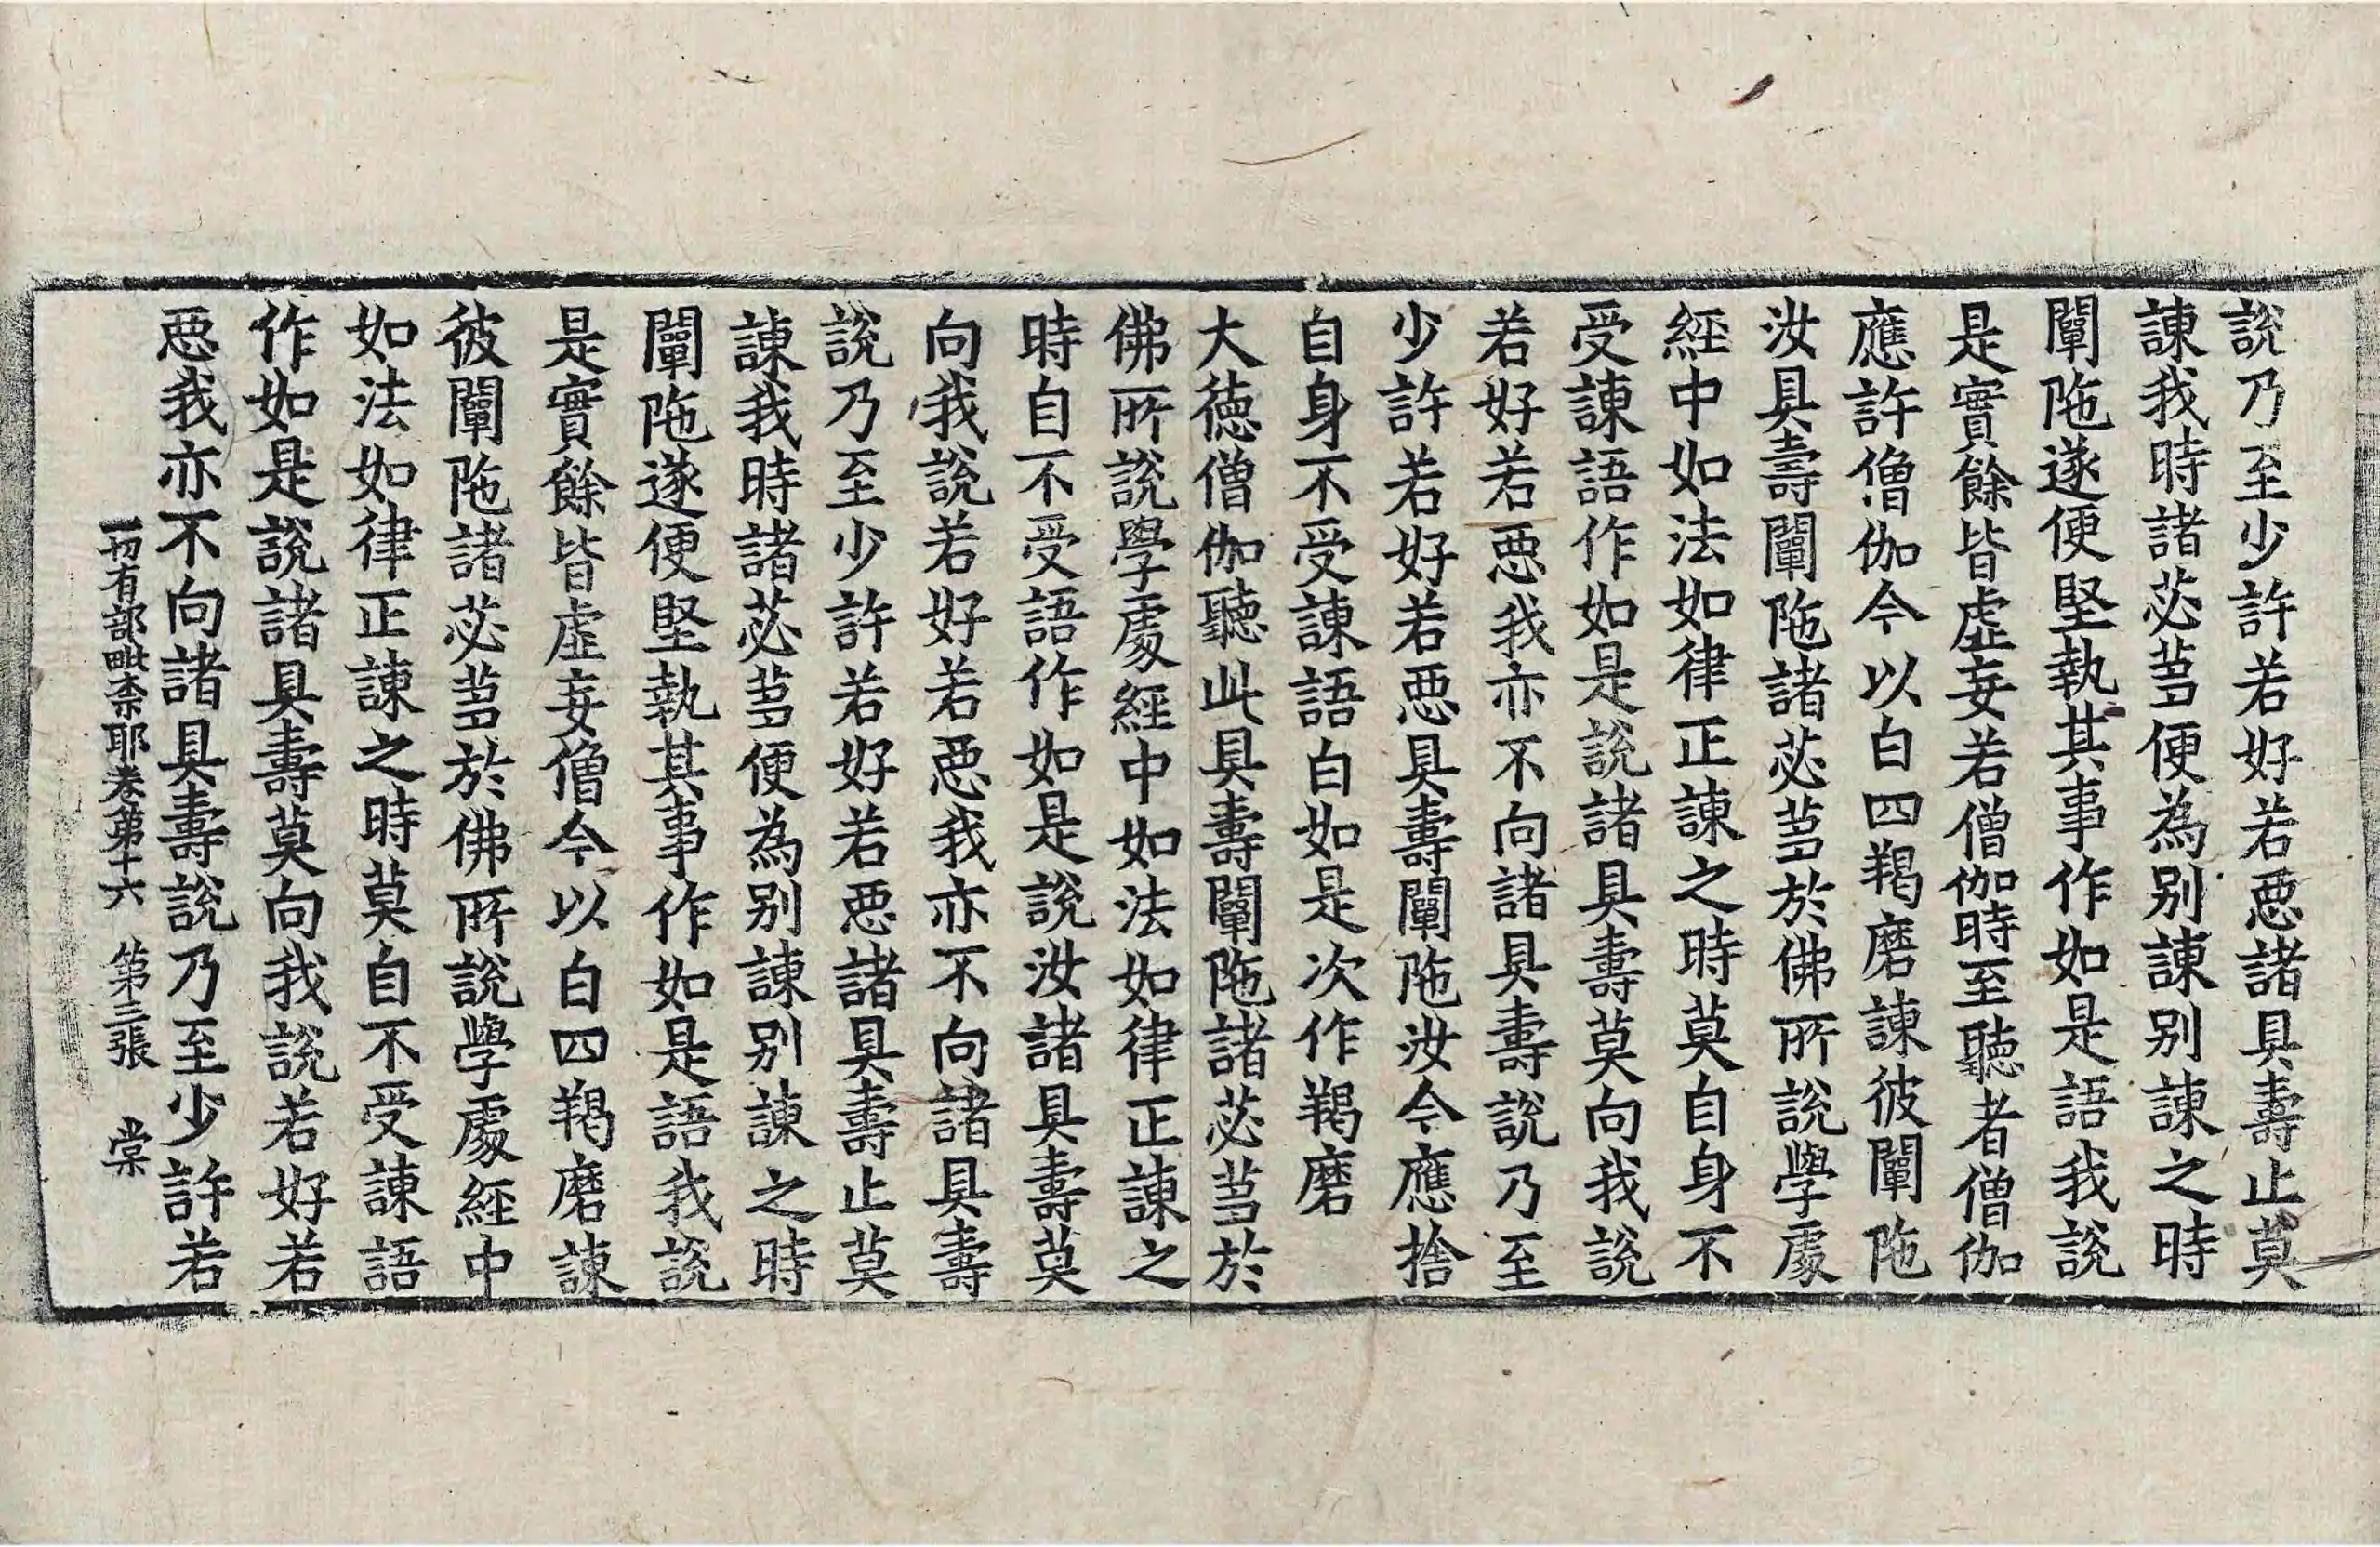 說乃至少許若好若惡諸具壽止莫
諫我時諸苾芻便為別諫別諫之時
闡陁遂便堅執其事作如是語我說
是實餘皆虛妄若僧伽時至聽者僧伽
應許僧伽今以白四羯磨諫彼闡陁
汝具壽闡陁諸苾芻於佛所說學處
經中如法如律正諫之時莫自身不
受諫語作如是說諸具壽莫向我說
若好若惡我亦不向諸具壽說乃至
少許若好若惡具壽闡陁汝今應捨
自身不受諫語白如是次作羯磨
大德僧伽聽此具壽闡陁諸苾芻於
佛所說學處經中如法如律正諫之
時自不受語作如是說汝諸具壽莫
向我說若好若惡我亦不向諸具壽
說乃至少許若好若惡諸具壽止莫
諫我時諸苾芻便為別諫別諫之時
闡陁遂便堅執其事作如是語我說
是實餘皆虛妄僧今以白四羯磨諫
彼闡陁諸苾芻於佛所說學處經中
如法如律正諫之時莫自不受諫語
作如是說諸具壽莫向我說若好若
惡我亦不向諸具壽說乃至少許若
一切有部毗柰耶卷第十六 第三張 棠